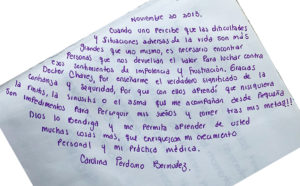 Noviembre 20 2013.
Cuando uno percibe que las dificultades
y situaciones adversas de la vida son más
grandes que uno mismo, es necesario encontrar
Personas que nos devuelvan el valor para luchar contra
esos sentimientos de impotencia y frustración. Gracias
Doctor Chávez, por enseñarme el verdadero significado de la
Confianza y Seguridad, Por que con ellos aprendí que ni siquiera
la rinitis, la sinusitis o el asma que me acompañan desde pequeña
son impedimentos para Perseguir mis sueños y correr tras mis metas!!!
Dios lo Bendiga y me Permita aprender de usted
muchas cosas más, que enriquezcan mi crecimiento
Personal y mi práctica médica.
Carolina Perdomo Bermúdez.